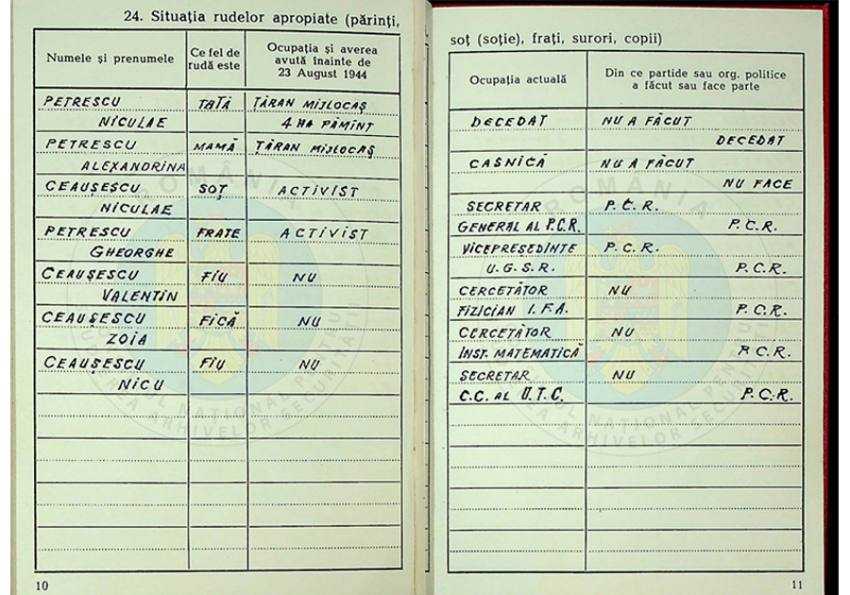 24. Situația rudelor apropiate (părinți,
Numele și prenumele
Ce fel de
rudă este
Ocupația și averea
avută înainte de
23 August 1944
PETRESCU TATĂ ȚĂRAN MIJLOCAȘ
NICULAE 4 HA PĂMÎNT
PETRESCU MAMĂ ȚĂRAN MIJLOCAȘ
ALEXANDRINA
CEAUȘESCU SOȚ ACTIVIST
NICULAE
PETRESCU FRATE ACTIVIST
GHEORGHE
CEAUȘESCU FIU NU
VALENTIN
CEAUȘESCU FICĂ NU
ZOIA
CEAUȘESCU FIU NU
NICU
10
soț (soție), frați, surori, copii)
Ocupația actuală
Din ce partide sau org. politice
a făcut sau face parte
DECEDAT NU A FĂCUT
DECEDAT
CASNICĂ NU A FĂCUT
NU FACE
SECRETAR P.C.R.
GENERAL AL P.C.R. P.C.R.
VICEPREȘEDINTE P.C.R.
U.G.S.R. P.C.R.
CERCETĂTOR NU
FIZICIAN I.F.A. P.C.R.
CERCETĂTOR NU
INST. MATEMATICĂ P.C.R.
SECRETAR NU
C.C. AL U.T.C. P.C.R.
11
ROMÂNIA
ROMÂNIA